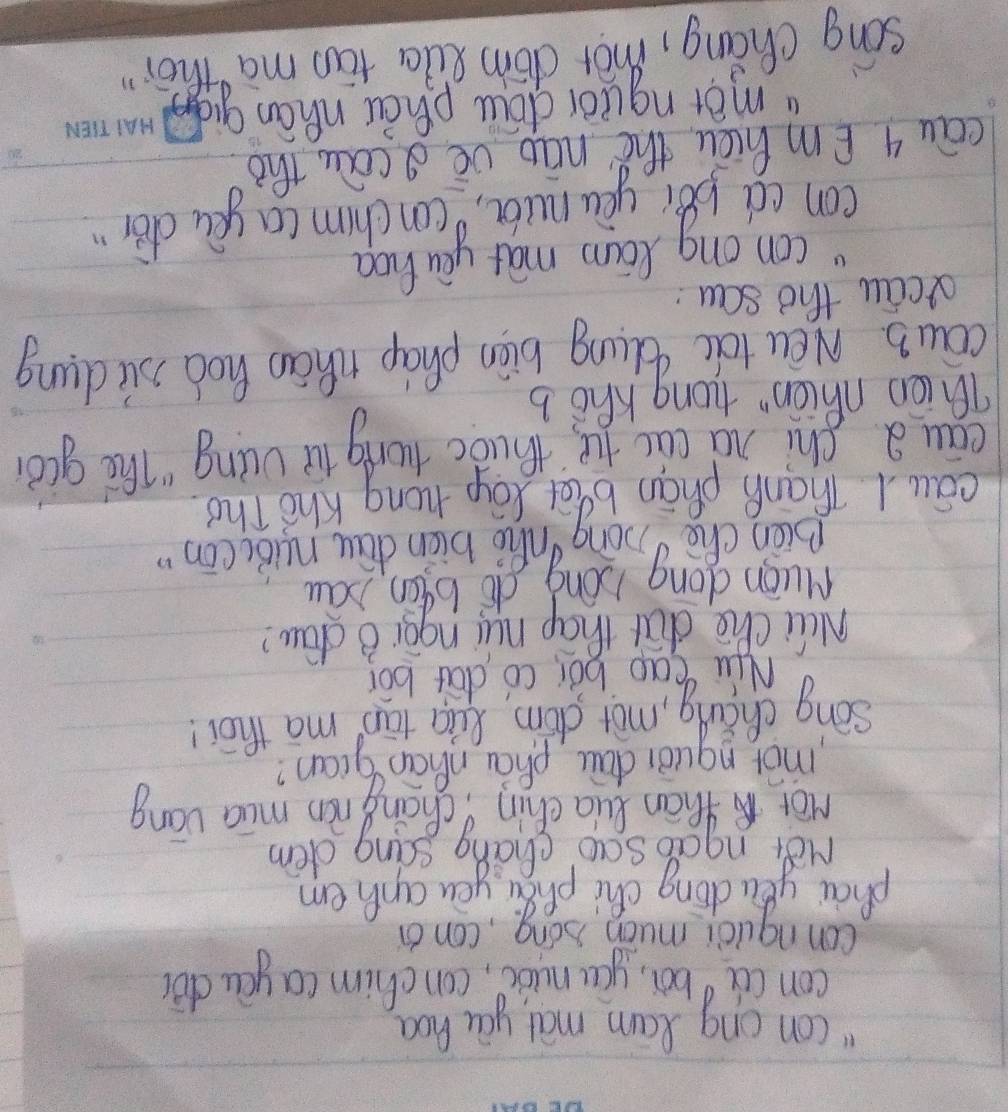 ĐỀ BÀI
"con ong làm mật yêu hoa
con cá bơi, yêu nước, con chim ca yêu đời
con người muốn sống, con ơi
phải yêu đồng chí phải yêu anh em
Một ngôi sao chẳng sáng đêm
Một thân lúa chín, chẳng nên mùa vàng
một người đâu phải nhân gian?
sống chẳng, một đốm lửa tàn mà thôi!
Núi cao bởi có đất bồi
Núi chê đất thấp núi ngồi ở đâu?
Muôn dòng sông đổ biển sâu
Biển chê sông nhỏ biển đâu nước còn"
câu 1. Thành phần biệt lập trong khổ Thơ.
câu 2. Chỉ ra các từ thuộc trường từ vựng "Thế giới
Thiên nhiên" trong khổ b
câu 3. Nêu tác dụng biện pháp nhân hoá sử dụng
2 câu thơ sau:
"con ong làm mật yêu hoa
con cá bơi yêu nước, con chim ca yêu đời"
câu 4 Em hiểu thế nào về 2 câu thơ
"một người đâu phải nhân gian HAI TIEN
sống chẳng, một đốm lửa tàn mà thôi"